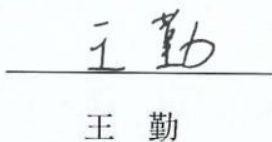 王勤
王 勤